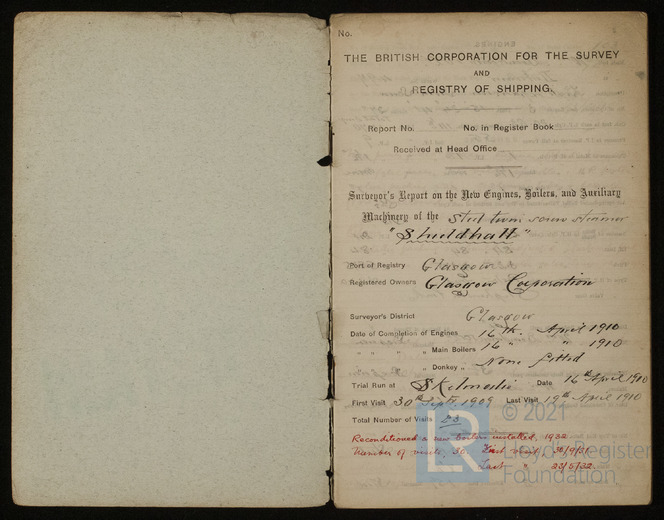 No.
THE BRITISH CORPORATION FOR THE SURVEY
AND
REGISTRY OF SHIPPING.
Report No. No. in Register Book
Received at Head Office
Surveyor's Report on the New Engines, Boilers, and Auxiliary
Machinery of the Steel twin screw steamer
"Shieldhall"
Port of Registry Glasgow
Registered Owners Glasgow Corporation
Surveyor's District Glasgow
Date of Completion of Engines 16th. April 1910
" " " " Main Boilers 16 " " 1910
" Donkey " None fitted
Trial Run at Skelmorlie Date 16th April 1910
First Visit 30th Sept. 1909 Last Visit 19th April 1910
Total Number of Visits
Reconditioned & new boilers installed, 1932
Number of visits, 30. First visit, 30/9/31.
Last " 23/5/32.
© 2021
LR
Lloyd's Register
Foundation